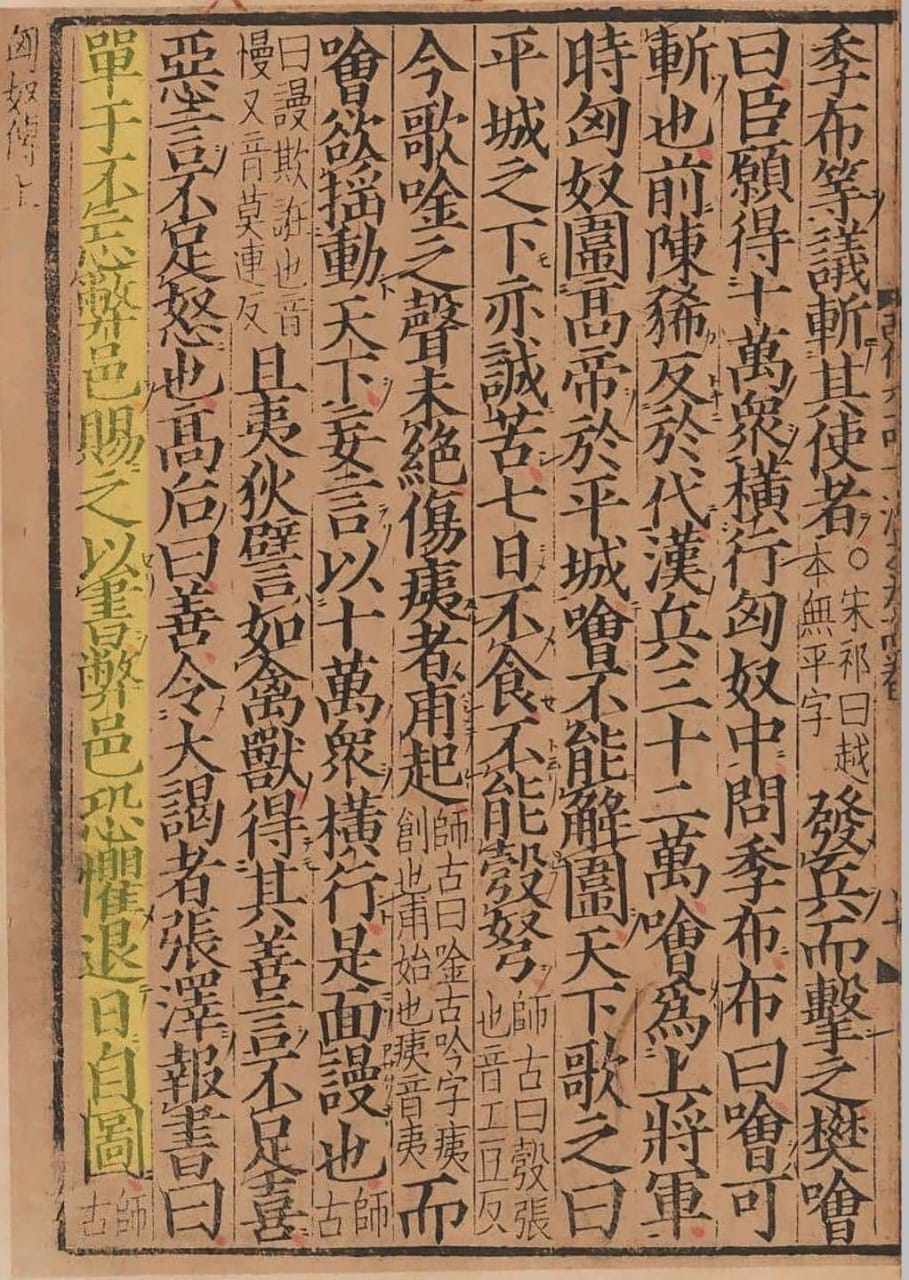 季布等議斬其使者○宋祁曰越本無平字發兵而擊之樊噲
曰臣願得十萬衆橫行匈奴中問季布布曰噲可
斬也前陳豨反於代漢兵三十二萬噲爲上將軍
時匈奴圍髙帝於平城噲不能解圍天下歌之曰
平城之下亦誠苦七日不食不能彀弩師古曰彀張也音工豆反
今歌唫之聲未絶傷痍者甫起師古曰唫古吟字痍創也甫始也痍音夷而
噲欲揺動天下妄言以十萬衆橫行是面謾也師古
曰謾欺誑也音慢又音莫連反且夷狄譬如禽獸得其善言不足喜
惡言不足怒也髙后曰善令大謁者張澤報書曰
單于不忘弊邑賜之以書弊邑恐懼退日自圖師古
匈奴傳上